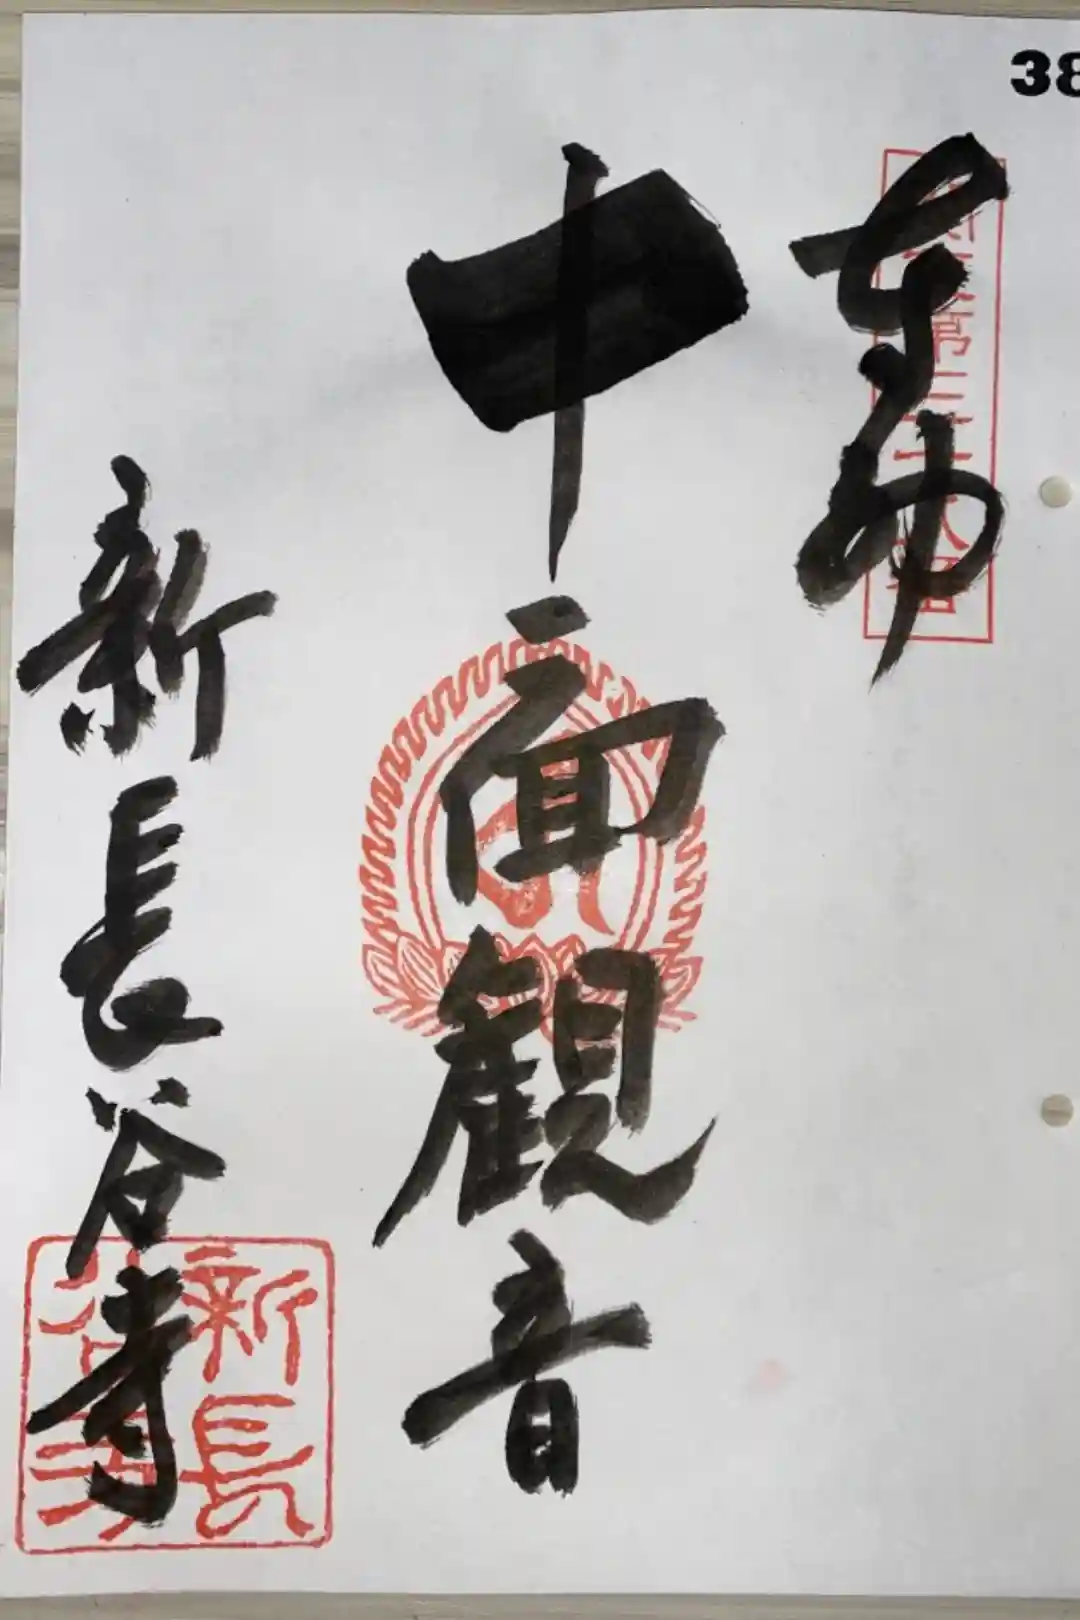 38
奉拝
第三十八番
十一面観音
新長谷寺
新長谷寺